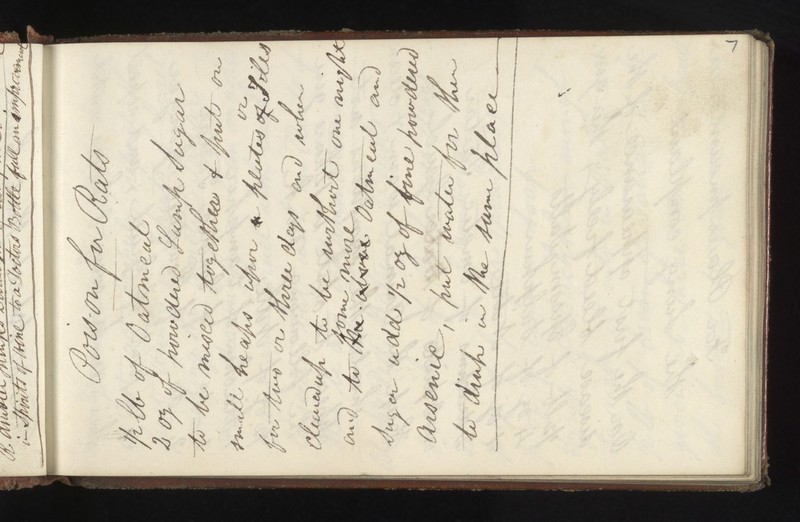 7
Poison for Rats
½ lb of Oatmeal
2 oz of powdered Lump Sugar
to be mixed together & put on
small heaps upon plates or Tiles
for two or three days and when
cleared up to be without one night
and to some more Oatmeal and
Sugar add ½ oz of fine powdered
Arsenic, put water for them
to drink in the same place
in Spirits of Wine to a Doctors Bottle full